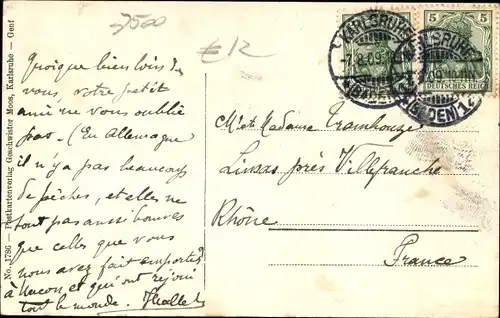 7500
€12
No. 1786 — Postkartenverlag Geschwister Moos, Karlsruhe — Genf
Quoique bien loin de
vous, votre petit
ami ne vous oublie
pas. (En Allemagne
il n'y a pas beaucoup
de pêches, et elles ne
sont pas aussi bonnes
que celles que vous
nous avez fait emporter
à Macon et qui ont réjoui
tout le monde.
KARLSRUHE
-7.8.09
(BADEN) 1
KARLSRUHE
09.10-11N
(BADEN) 1
5 5
DEUTSCHES REICH
M. et Madame Tramhouze
Limas près Villefranche
Rhône
France